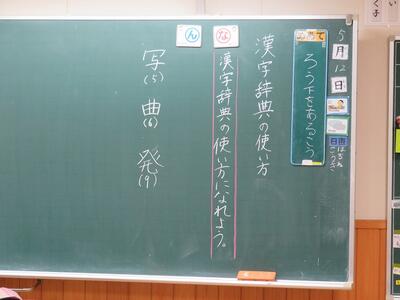 5月12日
めあて
ろう下をあるこう
漢字辞典の使い方
な
漢字辞典の使い方になれよう。
ん
写(5) 曲(6) 発(9)